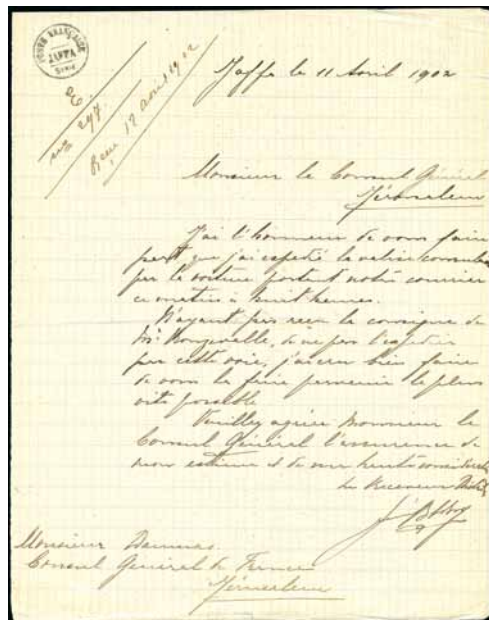 POSTE FRANÇAISE
JAFFA
Jaffa le 11 Avril 1902
E.
297
Reçu 12 avril 1902
Monsieur le Consul Général
Jérusalem
J'ai l'honneur de vous faire
part que j'ai expédié la valise consulaire
par la voiture portant notre courrier
ce matin à huit heures.
N'ayant pas reçu la consigne de
Mr de ne pas l'expédier
par cette voie, j'ai cru bien faire
de vous la faire parvenir le plus
vite possible
Veuillez agréer Monsieur le
Consul Général l'assurance de
mon estime et de ma haute considération
Le Receveur
Monsieur
Consul Général de France
Jérusalem